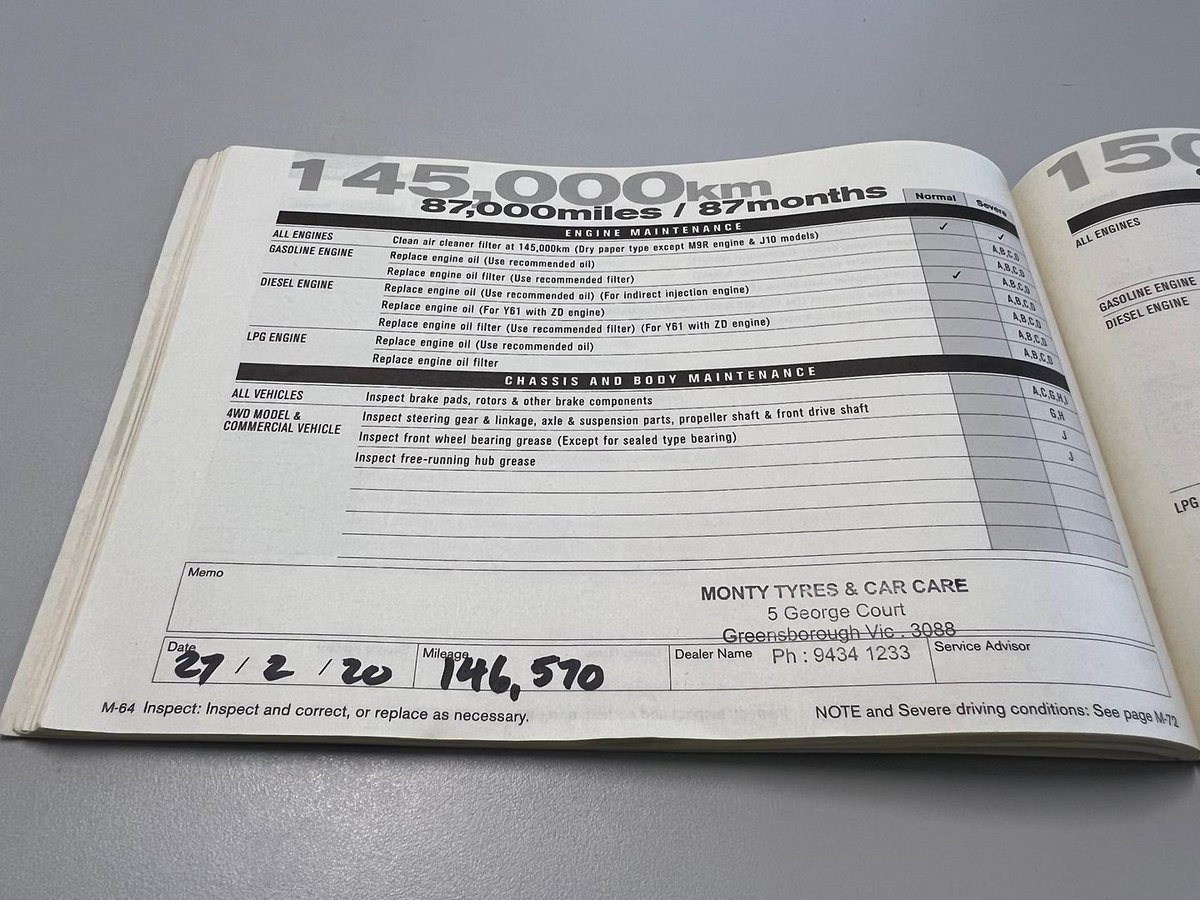 145,000km
87,000miles / 87months
Normal Severe
ENGINE MAINTENANCE
ALL ENGINES Clean air cleaner filter at 145,000km (Dry paper type except M9R engine & J10 models) ✓ ✓
GASOLINE ENGINE Replace engine oil (Use recommended oil) A,B,C,D
Replace engine oil filter (Use recommended filter) A,B,C,D
DIESEL ENGINE Replace engine oil (Use recommended oil) (For indirect injection engine) ✓ A,B,C,D
Replace engine oil (For Y61 with ZD engine) A,B,C,D
Replace engine oil filter (Use recommended filter) (For Y61 with ZD engine) A,B,C,D
LPG ENGINE Replace engine oil (Use recommended oil) A,B,C,D
Replace engine oil filter A,B,C,D
CHASSIS AND BODY MAINTENANCE
ALL VEHICLES Inspect brake pads, rotors & other brake components A,C,G,H,I
4WD MODEL & Inspect steering gear & linkage, axle & suspension parts, propeller shaft & front drive shaft G,H
COMMERCIAL VEHICLE Inspect front wheel bearing grease (Except for sealed type bearing) J
Inspect free-running hub grease J
Memo
MONTY TYRES & CAR CARE
5 George Court
Greensborough Vic . 3088
Ph : 9434 1233
Date 27 / 2 / 20 Mileage 146,570 Dealer Name Service Advisor
M-64 Inspect: Inspect and correct, or replace as necessary. NOTE and Severe driving conditions: See page M-72
150
ALL ENGINES
GASOLINE ENGINE
DIESEL ENGINE
LPG